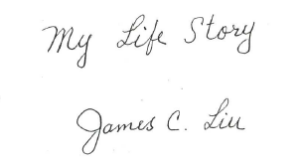 My Life Story
James C. Liu